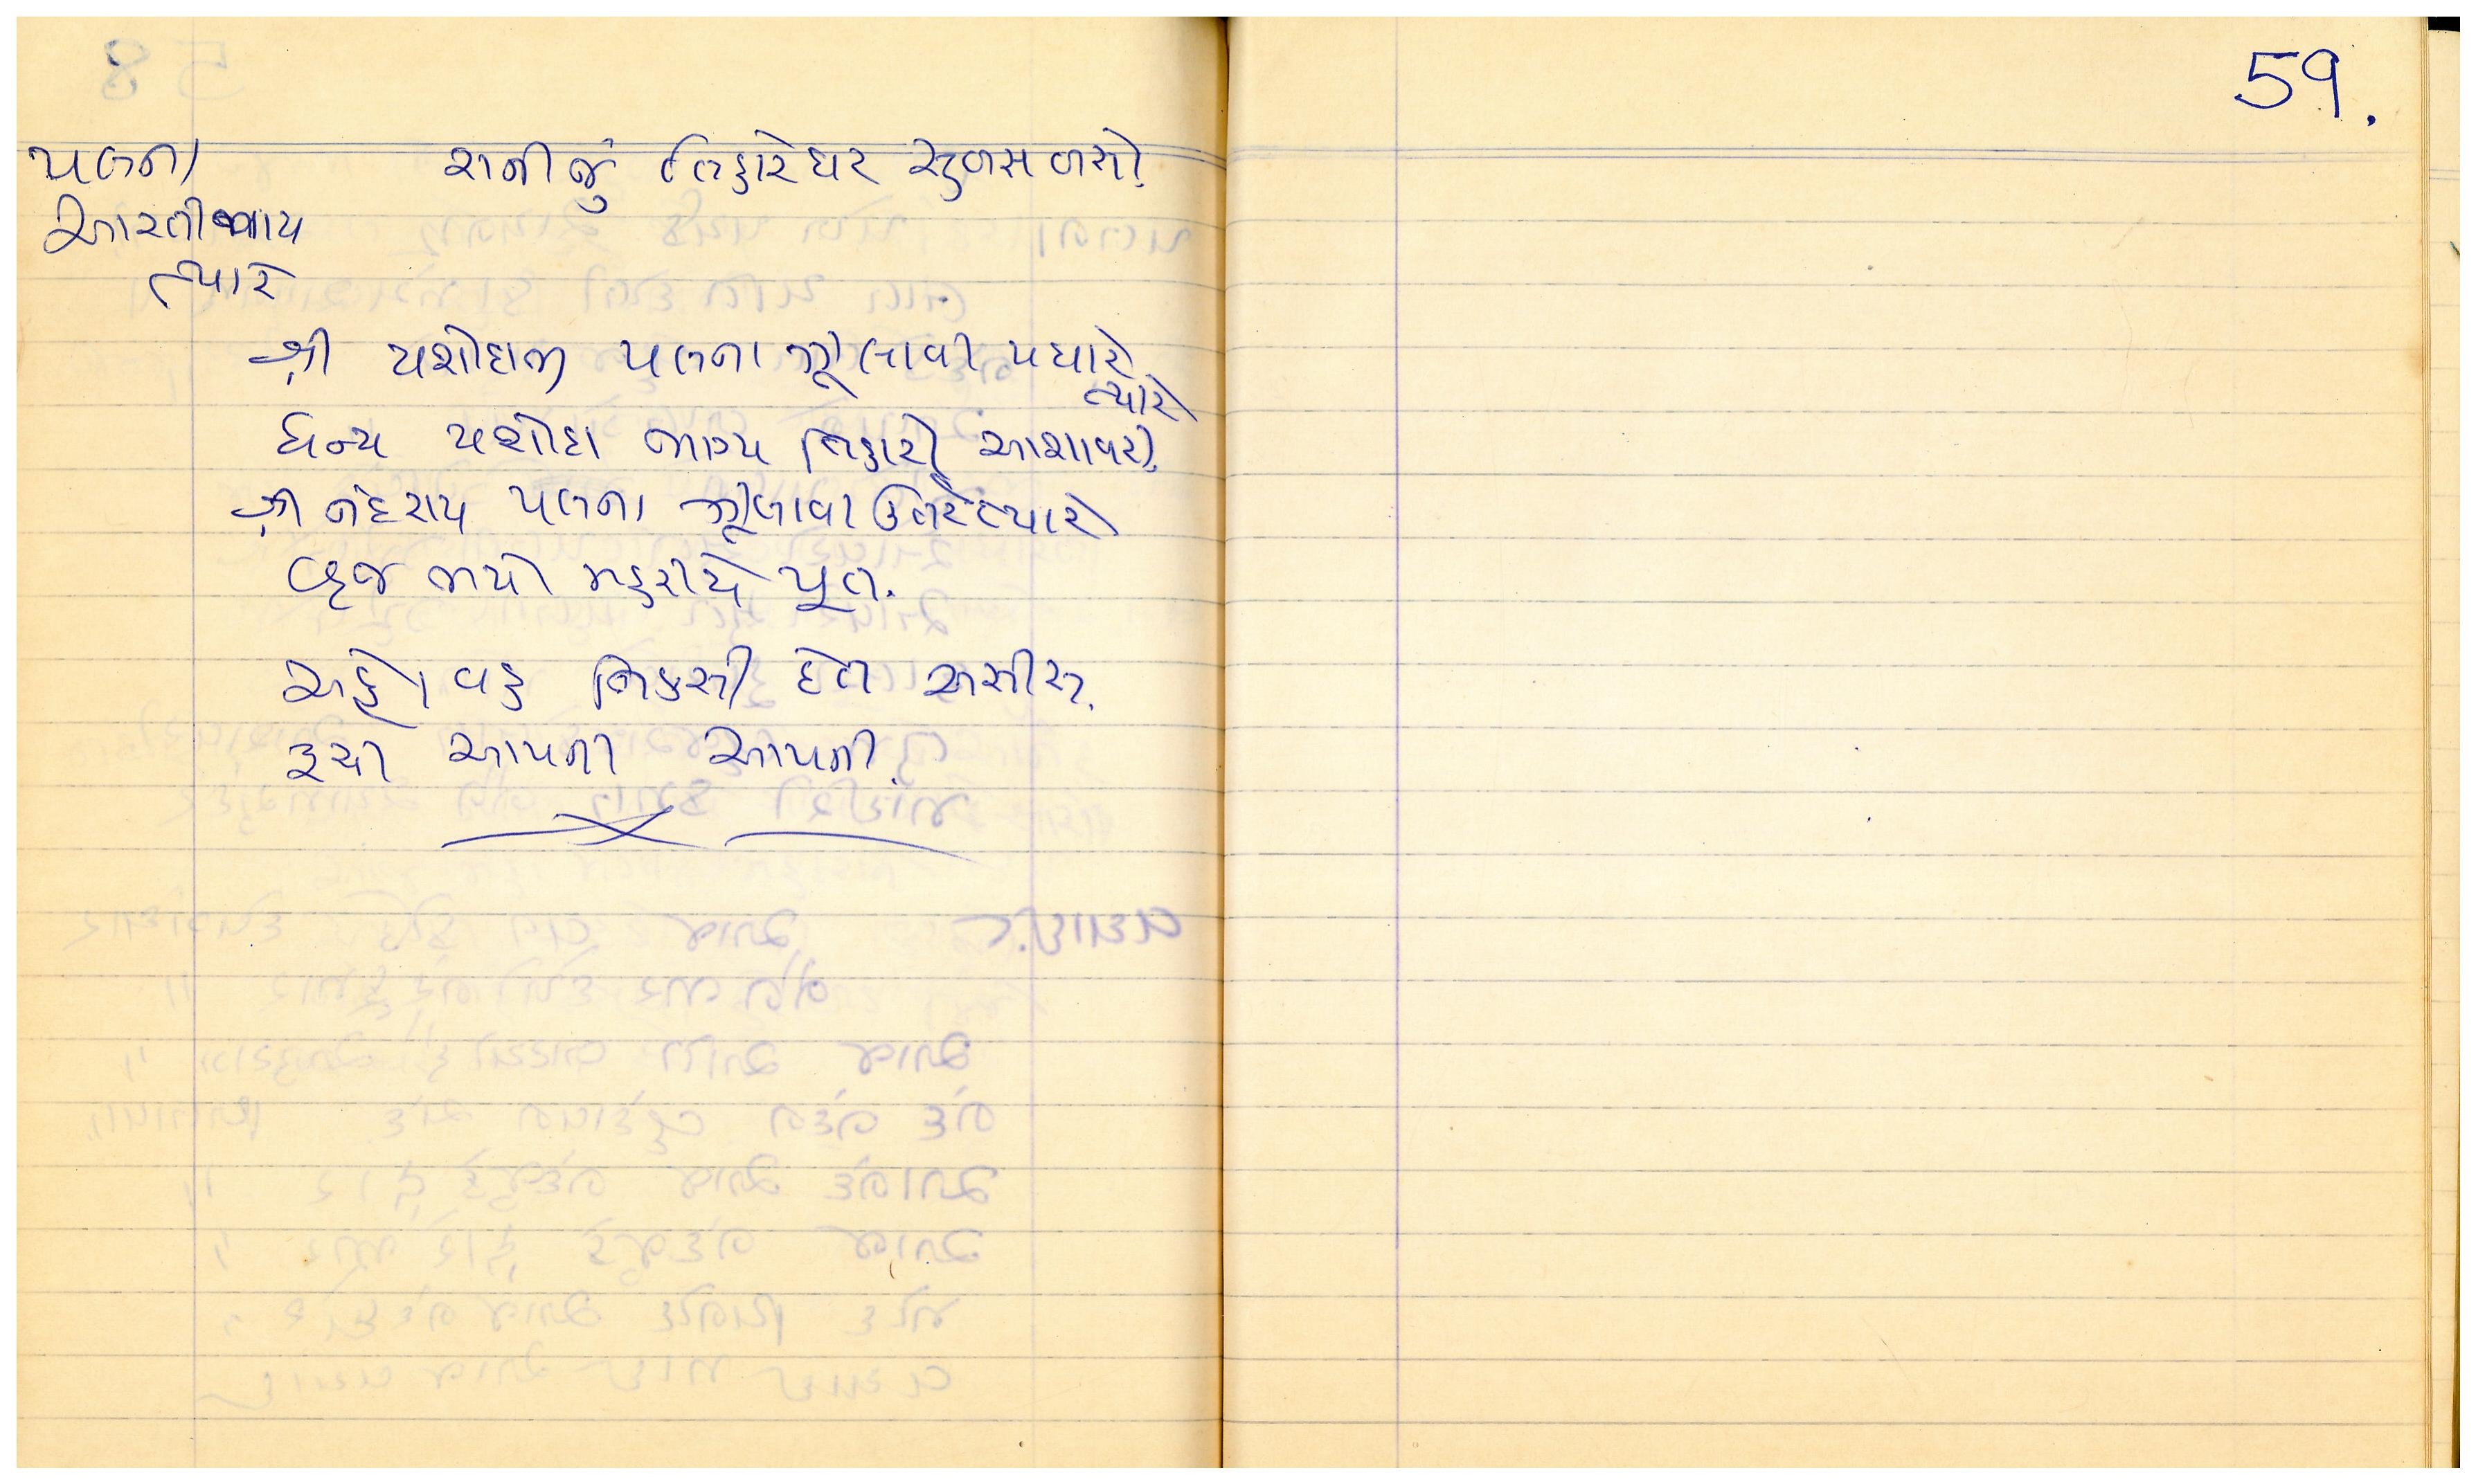 59.
પલના રાનીજું તિહારે ઘર સુબસ બસો.
આરતી થાય
ત્યારે
શ્રી યશોદાજી પલના ઝૂલાવી પધારે
ત્યારે
ધન્ય યશોદા ભાગ્ય તિહારો આશાવરી.
શ્રી નંદરાય પલના ઝૂલાવી ઉતરે ત્યારે
વ્રજ ભયો મહરીયે પૂત.
અહો વહ નિકસી દેત અસીસ.
રૂચી આપની આપની.